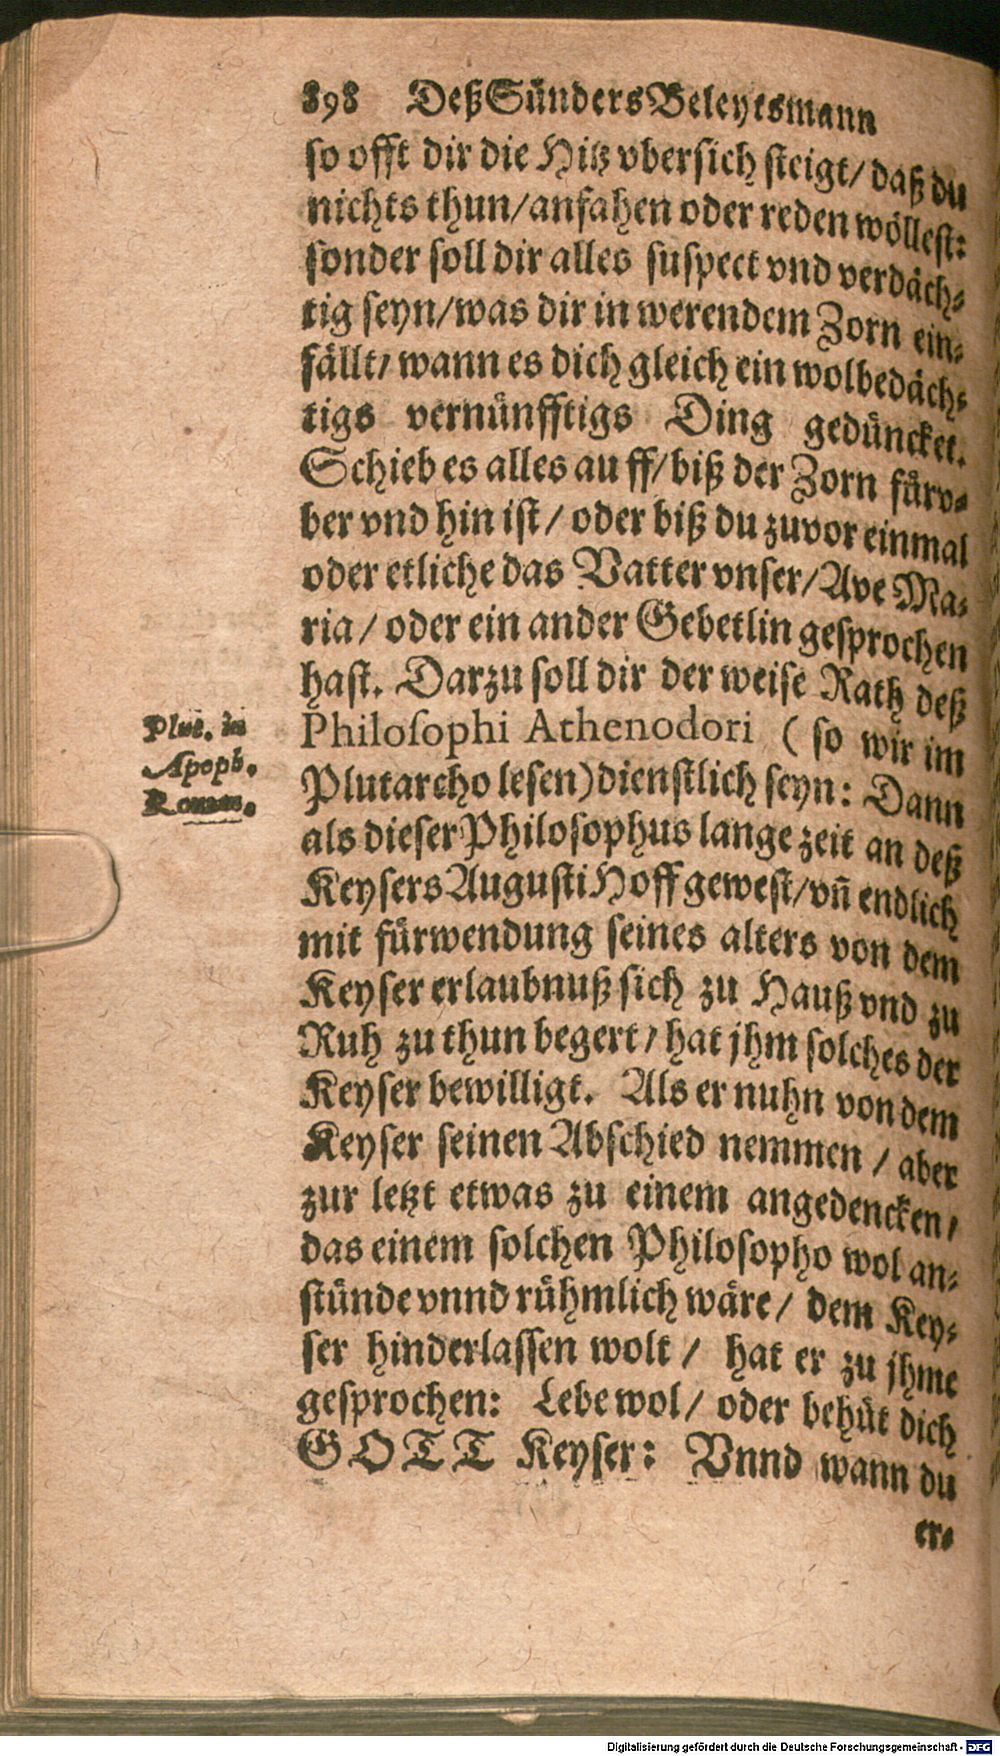 898 Deß Sünders Beleytsmann
so offt dir die Hitz vbersich steigt/ daß du
nichts thun/ anfahen oder reden wöllest:
sonder soll dir alles suspect vnd verdäch-
tig seyn/ was dir in werendem Zorn ein-
fällt/ wann es dich gleich ein wolbedäch-
tigs vernünfftigs Ding gedüncket.
Schieb es alles auff/ biß der Zorn fürv-
ber vnd hin ist/ oder biß du zuvor einmal
oder etliche das Vatter vnser/ Ave Ma-
ria/ oder ein ander Gebetlin gesprochen
hast. Darzu soll dir der weise Rath deß
Plut. in
Apoph.
Roman.
Philosophi Athenodori (so wir im
Plutarcho lesen) dienstlich seyn: Dann
als dieser Philosophus lange zeit an deß
Keysers Augusti Hoff gewest/ vn̄ endlich
mit fürwendung seines alters von dem
Keyser erlaubnuß sich zu Hauß vnd zu
Ruh zu thun begert/ hat jhm solches der
Keyser bewilligt. Als er nuhn von dem
Keyser seinen Abschied nemmen/ aber
zur letzt etwas zu einem angedencken/
das einem solchen Philosopho wol an-
stünde vnnd rühmlich wäre/ dem Key-
ser hinderlassen wolt/ hat er zu jhme
gesprochen: Lebe wol/ oder behüt dich
GOTT Keyser: Vnnd wann du
er-
Digitalisierung gefördert durch die Deutsche Forschungsgemeinschaft - DFG